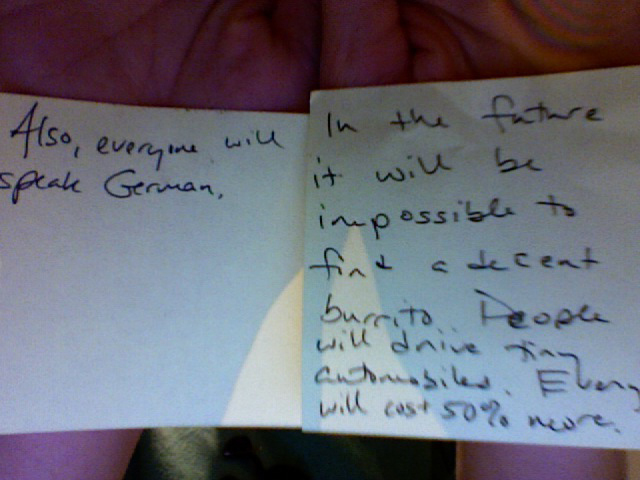 Also, everyone will
speak German.
In the future
it will be
impossible to
find a decent
burrito. People
will drive tiny
automobiles. Every
will cost 50% more.